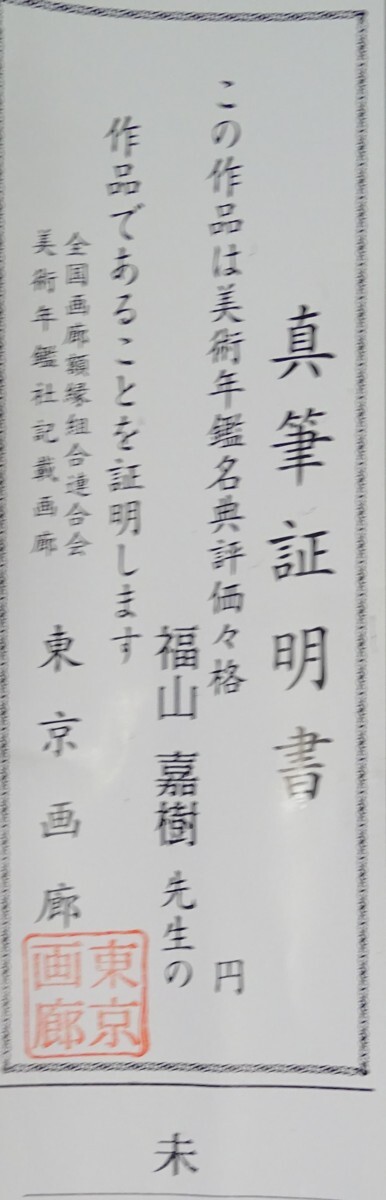 真筆証明書
この作品は美術年鑑名典評価々格 円
福山 嘉樹 先生の
作品であることを証明します
全国画廊額縁組合連合会
美術年鑑社記載画廊
東京画廊
東京
画廊
未